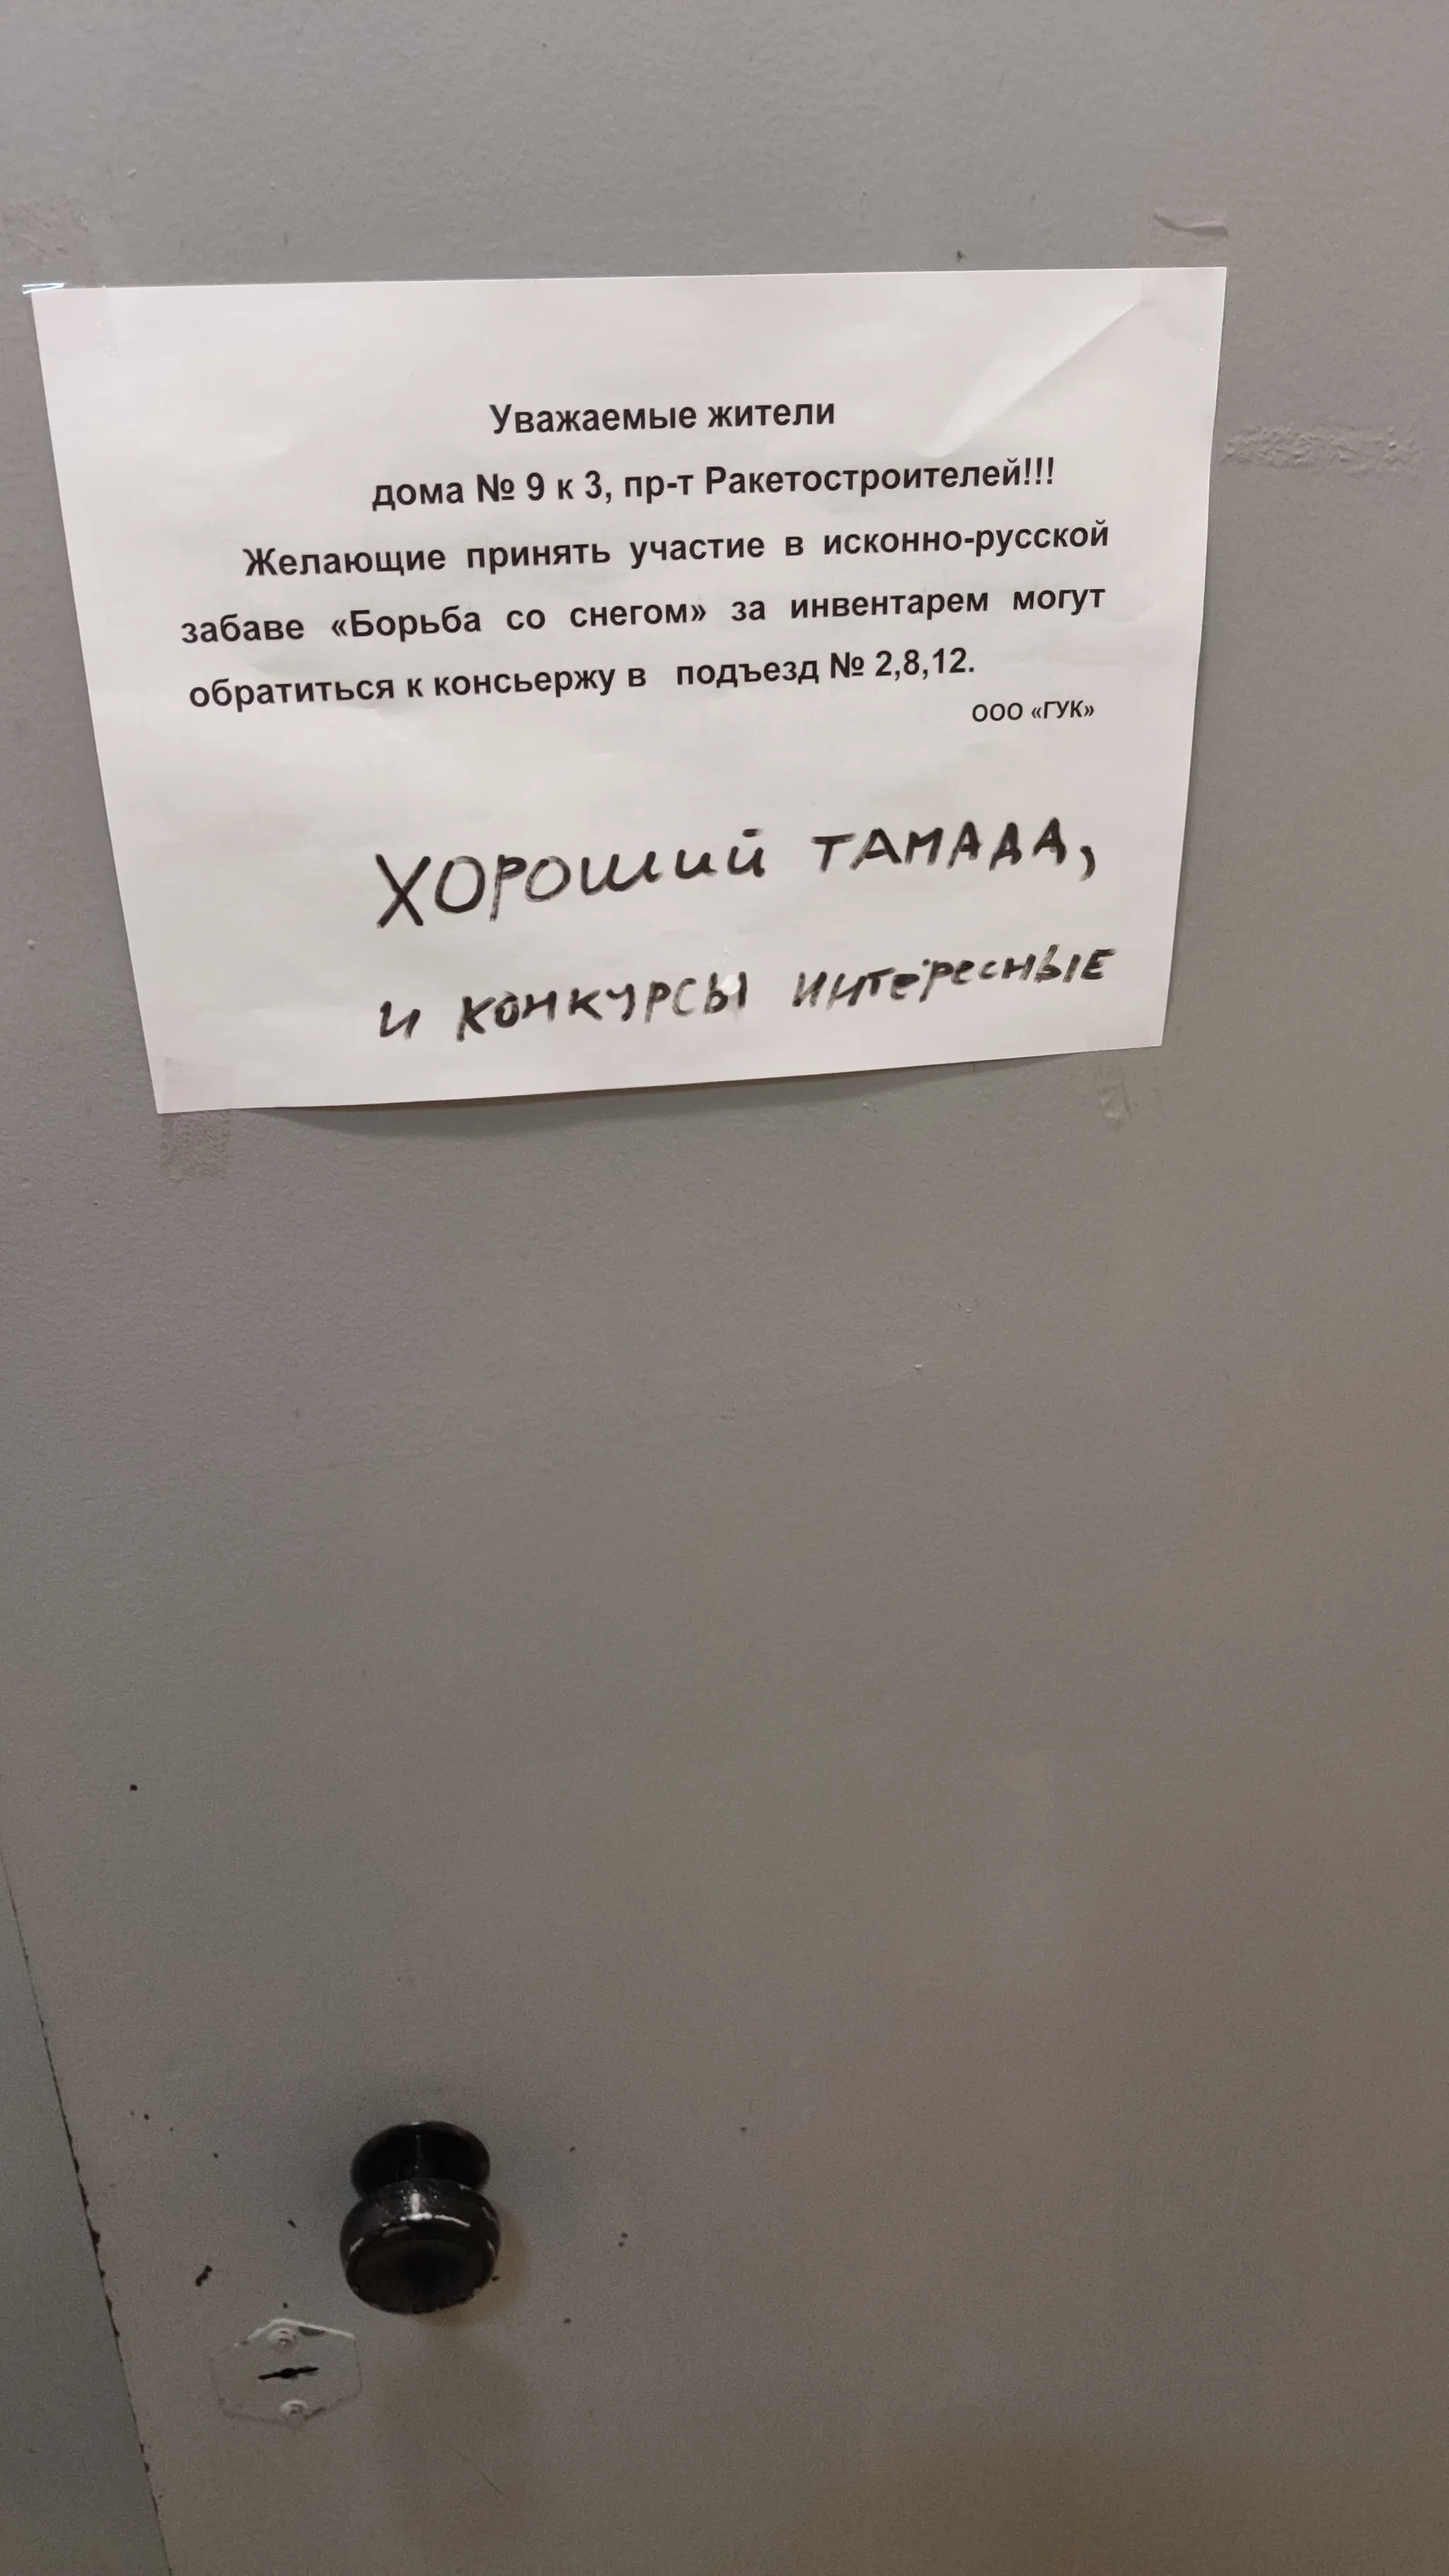 Уважаемые жители
дома № 9 к 3, пр-т Ракетостроителей!!!
Желающие принять участие в исконно-русской
забаве «Борьба со снегом» за инвентарем могут
обратиться к консьержу в подъезд № 2,8,12.
ООО «ГУК»
ХОРОШИЙ ТАМАДА,
И КОНКУРСЫ ИНТЕРЕСНЫЕ